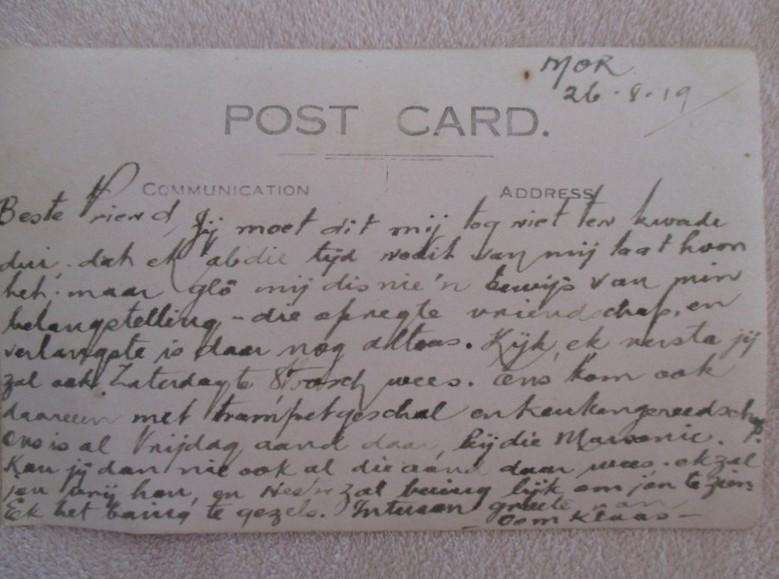 MOR
26-8-19
POST CARD.
COMMUNICATION
ADDRESS
Beste Vriend, Jij moet dit mij tog niet ten kwade
dui, dat ek al die tyd nooit van mij laat hoor
het. maar glo mij dis nie 'n bewijs van min
belangstelling - die opregte vriendschap, en
verlangste is daar nog altoos. Kijk, ek versta jij
zal ook Zaterdag te wees. Ons kom ook
daarheen met trompetgeschal en keukengereedschap
Ons is al Vrijdag aand daar, bij die Masonic.
Kan jij dan nie ook al die aand daar wees. ek zal
jou vrij hou, en zal baing lijk om jou te zien
Ek het baing te gezels. Intusen groete van
Oom Klaas